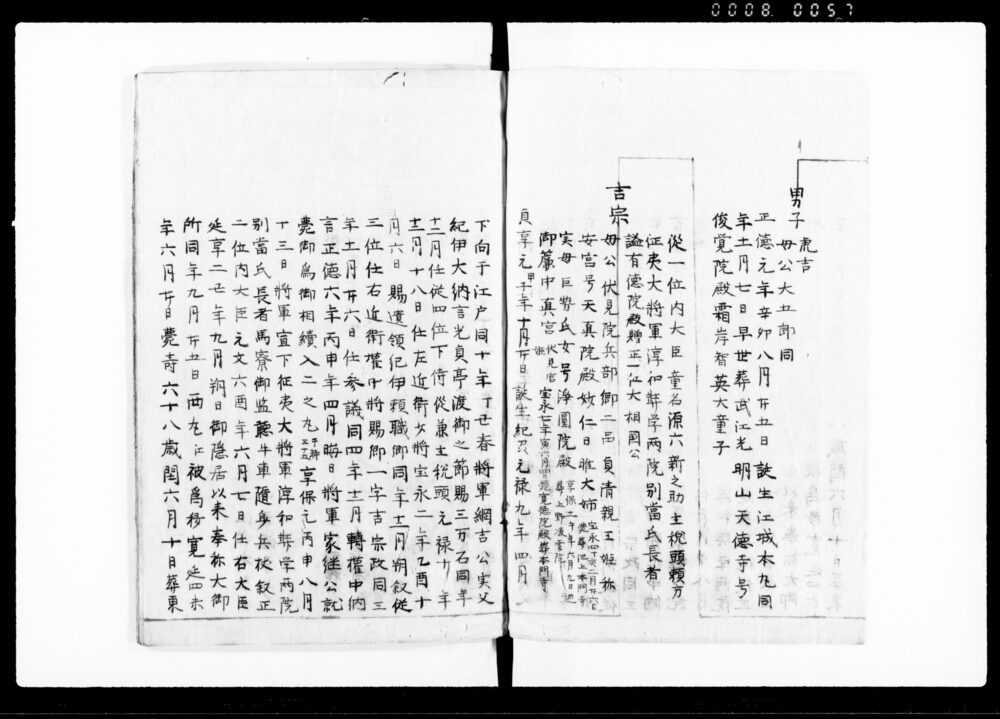 0008 0057
男子 虎吉
母公大五郎同
正徳元年辛卯八月廿五日誕生江城本丸同
年十一月七日早世葬武江光明山天徳寺号
俊覚院殿霜岸智英大童子
吉宗
従一位内大臣童名源六新之助主税頭頼方
征夷大将軍淳和弉学両院別當氏長者
謚有徳院殿贈正一位大相国公
母公伏見院兵部卿二品貞清親王姫称
安宮号天真院殿妙仁日雅大姉 宝永四丁亥二月廿六日薨葬池上本門寺
実母巨勢氏女号淨圓院殿 享保十一年六月九日逝葬上野凌雲院
御簾中真宮 伏見宮姫 宝永七年寅六月四日薨寛徳院殿葬本門寺
貞享元甲子年十月廿日誕生紀州元禄九年四月
下向于江戸同十年丁丑春将軍綱吉公実父
紀伊大納言光貞亭渡御之節賜三万石同年
十二月任従四位下侍従兼主税頭元禄十年
十二月十八日任左近衛少将宝永二年乙酉十
月六日賜遺領紀伊頼職卿同年十二月朔叙従
三位任右近衛權中将賜御一字吉宗改同三
年十一月廿六日任参議同四年十二月轉權中納
言正徳六年丙申年四月晦日将軍家継公就
薨御為御相續入二之丸 享保元丙申八月
十三日将軍宣下征夷大将軍淳和弉学両院
別當氏長者馬寮御監聽牛車随身兵杖叙正
二位内大臣元文六酉年六月七日任右大臣
延享二丑年九月朔日御隠居以来奉称大御
所同年九月廿五日西丸江被為移寛延四未
年六月廿日薨寿六十八歳閏六月十日葬東